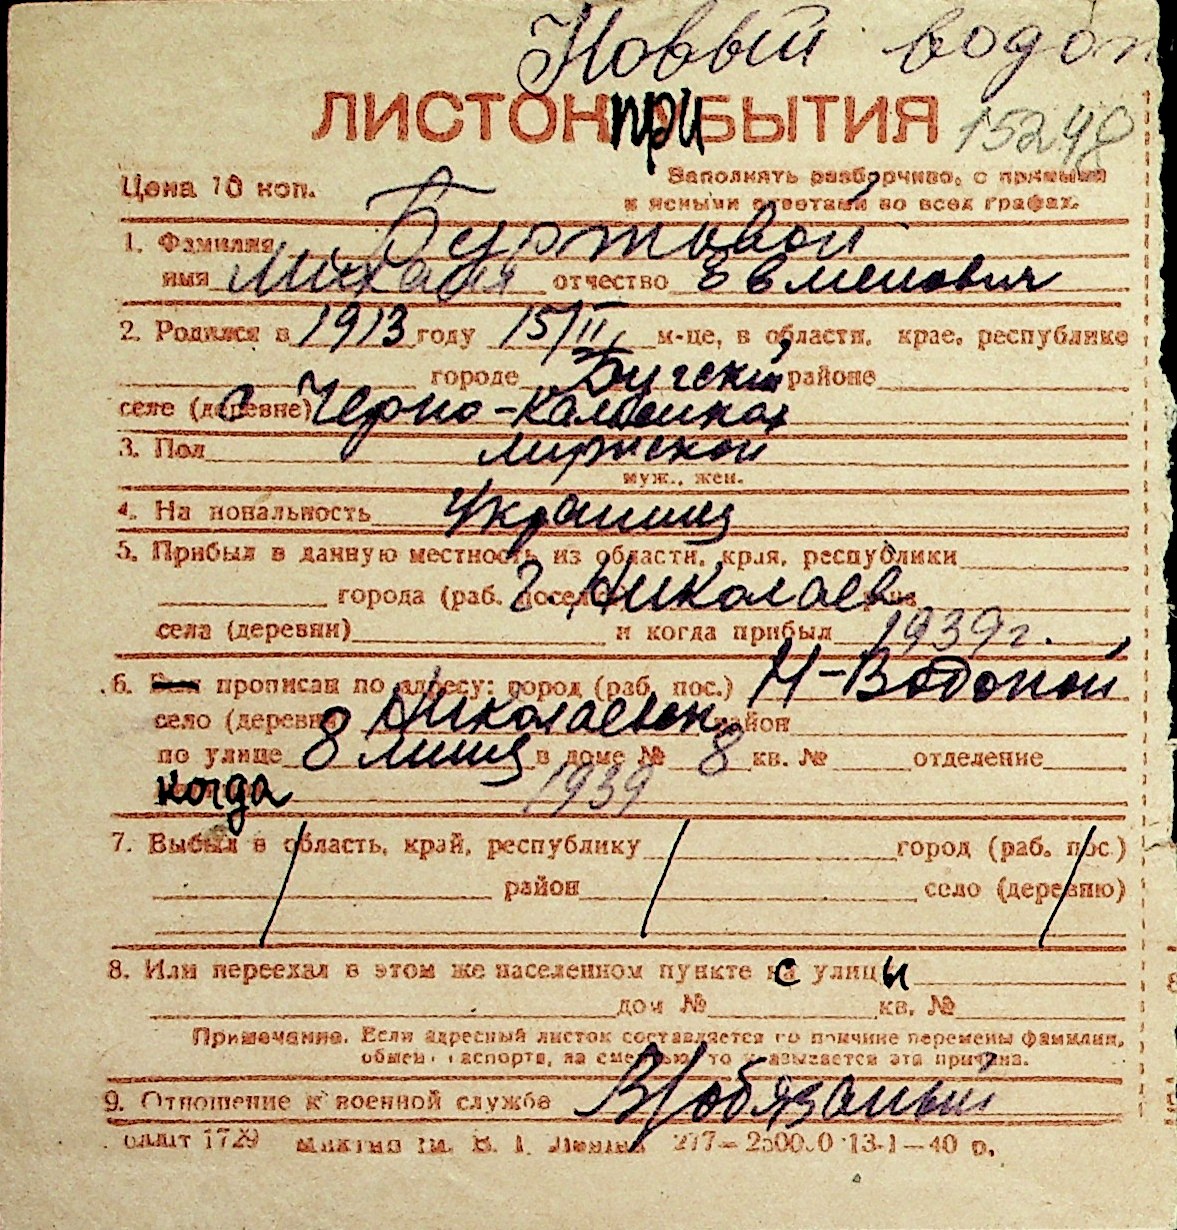 Новый водоп
ЛИСТОК ПРИБЫТИЯ
15248
Цена 10 коп.
Заполнять разборчиво, с прямыми
и ясными ответами во всех графах.
1. Фамилия Буртовой
имя Михаил отчество Евменович
2. Родился в 1913 году 15/II м-це, в области, крае, республике
городе Бугский районе
селе (деревне) с Черно-
3. Пол мужской
муж., жен.
4. На иональность Украинец
5. Прибыл в данную местность из области, края, республики
города (раб. поселка г. Николаев
села (деревни) и когда прибыл 1939 г.
6. прописан по адресу: город (раб. пос.) Н-Водопой
село (деревня Николаевск район
по улице 8 линия в доме № 8 кв. № отделение
когда 1939
7. Выбыл в область, край, республику город (раб. пос.)
район село (деревню)
8. Или переехал в этом же населенном пункте с улицы
дом № кв. №
Примечание. Если адресный листок составляется по причине перемены фамилии,
обмена паспорта, за смертью, то указывается эта причина.
9. Отношение к военной службе В/обязаный
1729 277—2500.0 13-1—40 р.